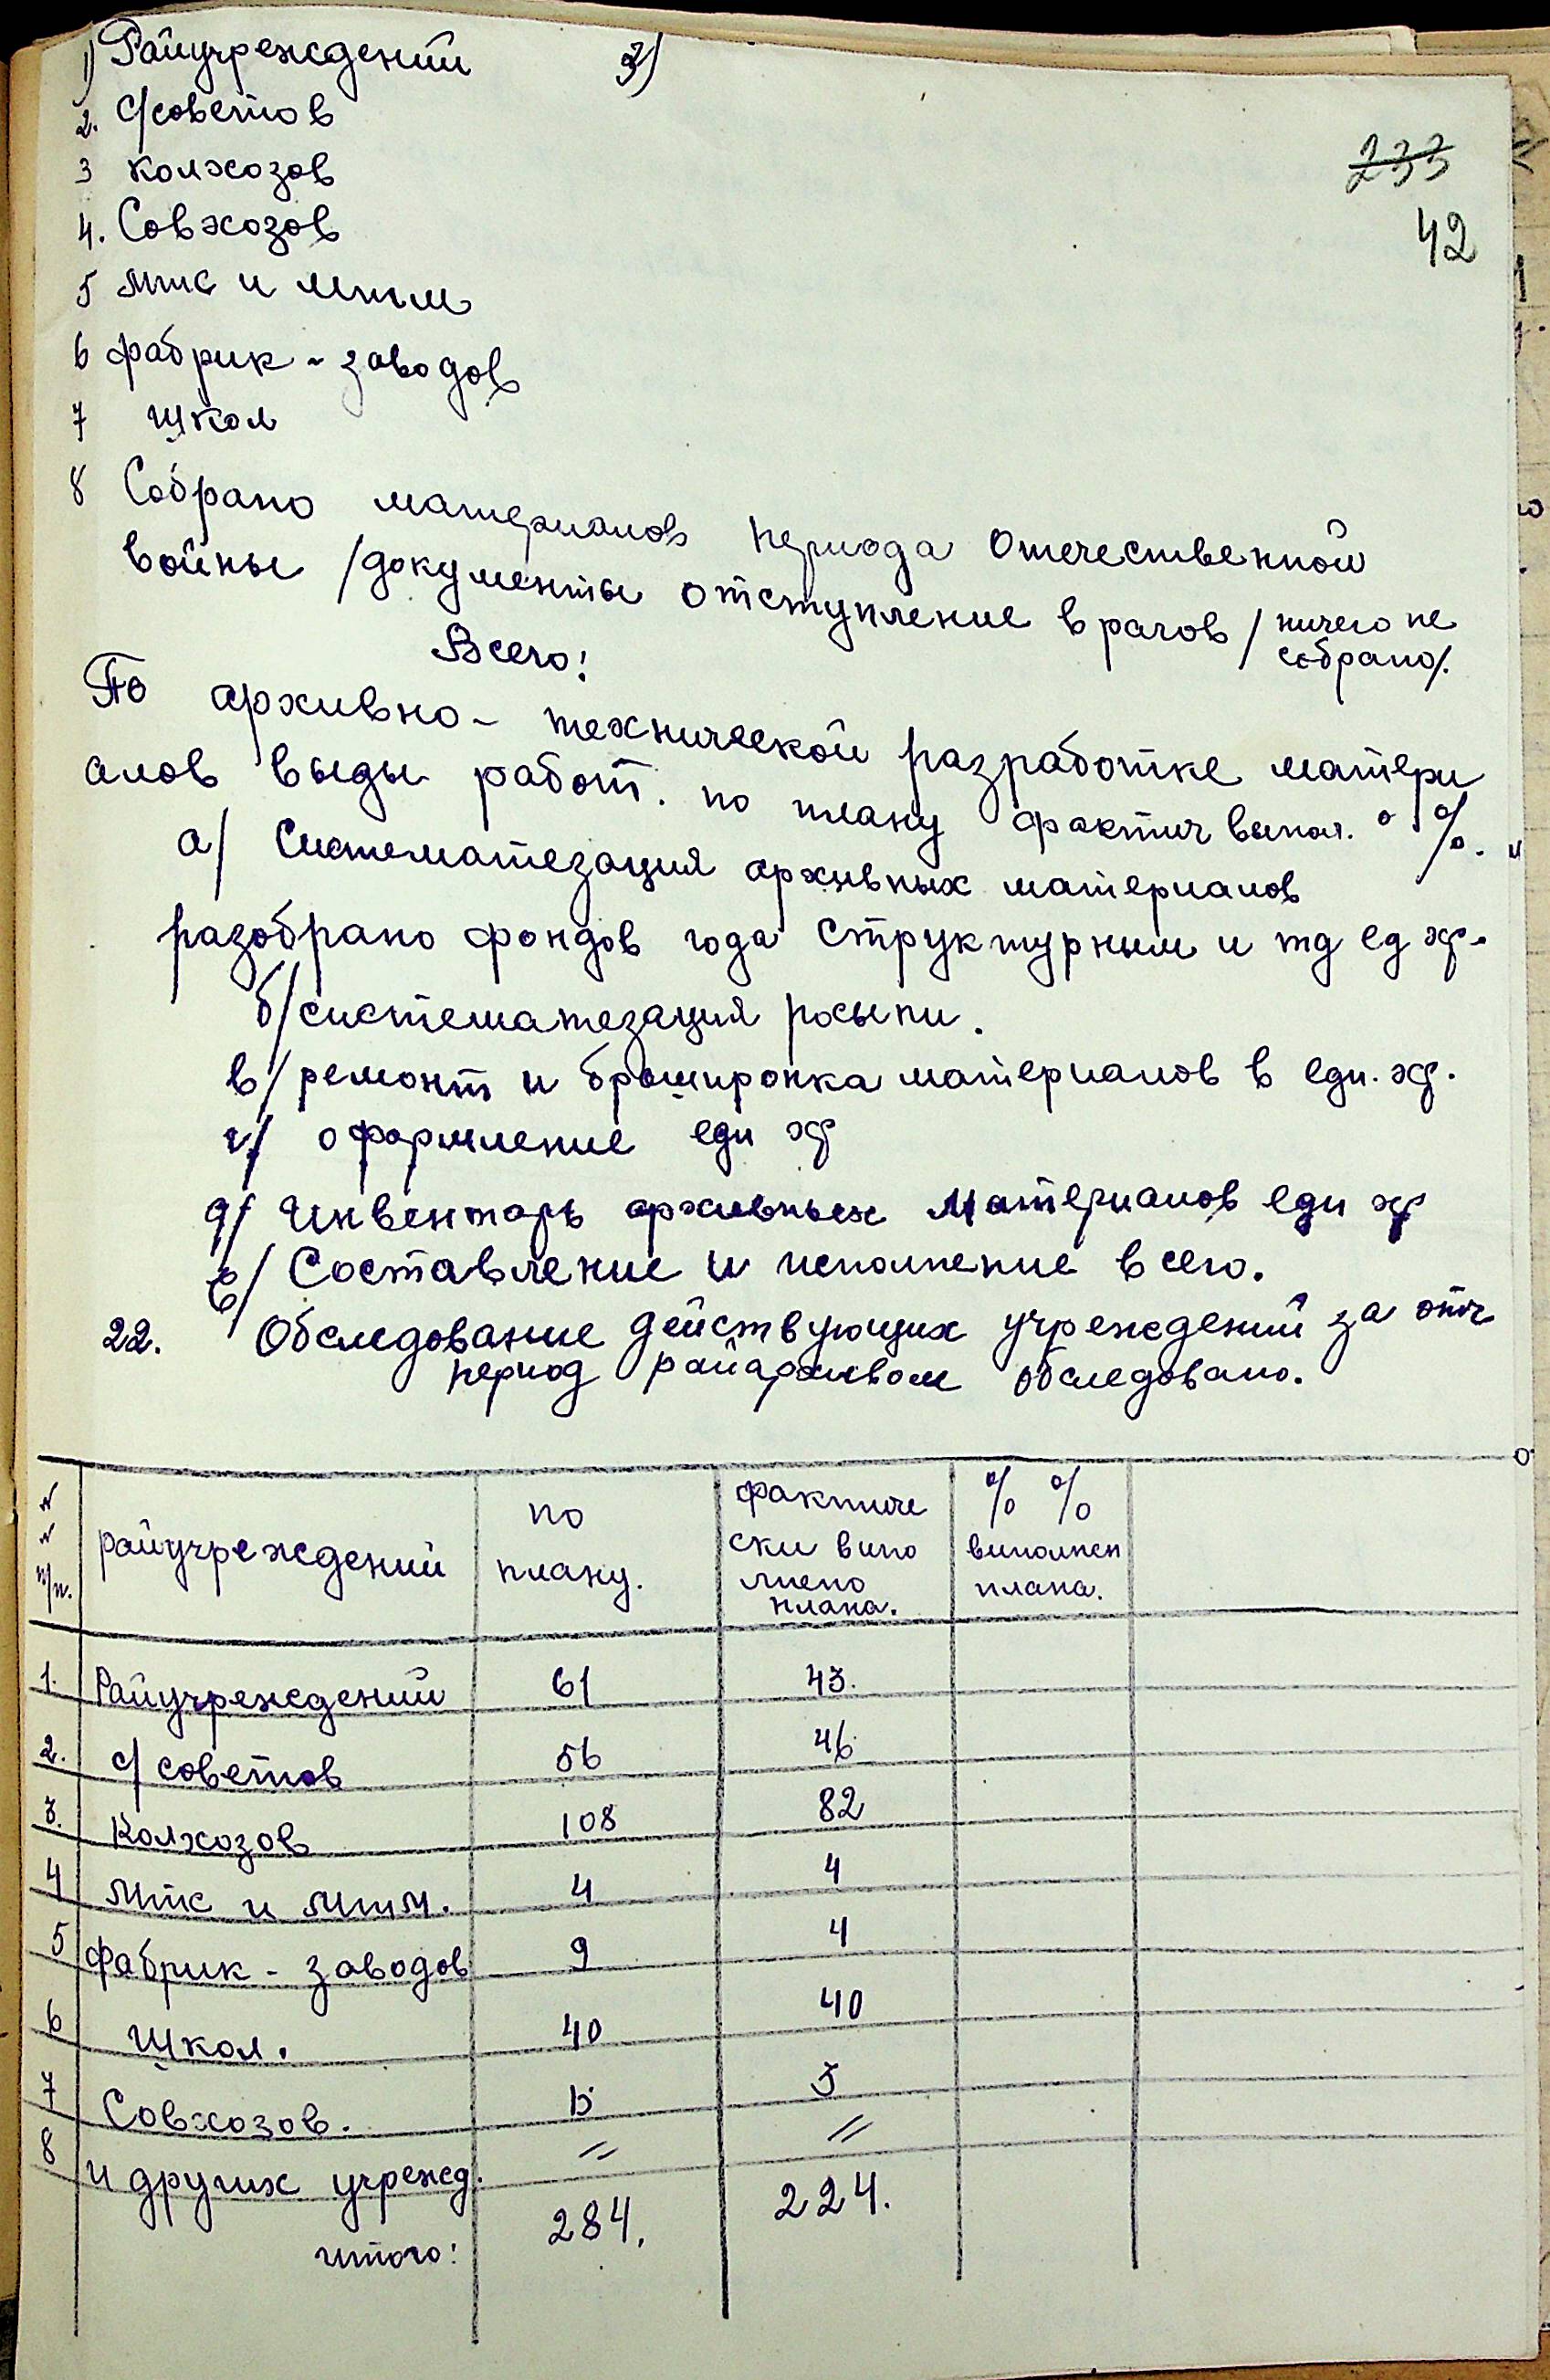 3)
1) Райучреждений
233
2. с/советов
3 колхозов
4. Совхозов
42
5 мтс и мтм
6 фабрик - заводов
7 школ
8 Собрано материалов периода Отечественной
войны /документы отступление врагов/ ничего не
собрано/.
Всего:
По архивно - технической разработке матери
алов выды работ. по плану фактич выпол. %.
а/ Систематезация архивных материалов
разобрано фондов года структурным и тд ед хр.
б/ систематезация росыпи.
в/ ремонт и брошировка материалов в еди. хр.
г/ оформление еди хр
д/ Инвентарь архивных материалов еди хр
е/ Составление и исполнение всего.
22. Обследование действующих учреждений за отч
период райархивом обследовано.
№ № п/п. райучреждений по плану. фактиче ски випо лнено плана. % % виполнен плана.
1. Райучреждений 61 43.
2. с/советов 56 46
3. Колхозов 108 82
4 мтс и мтм. 4 4
5 фабрик - заводов 9 4
6 Школ. 40 40
7 Совхозов. 5
8 и других учрежд. = =
итого: 284. 224.